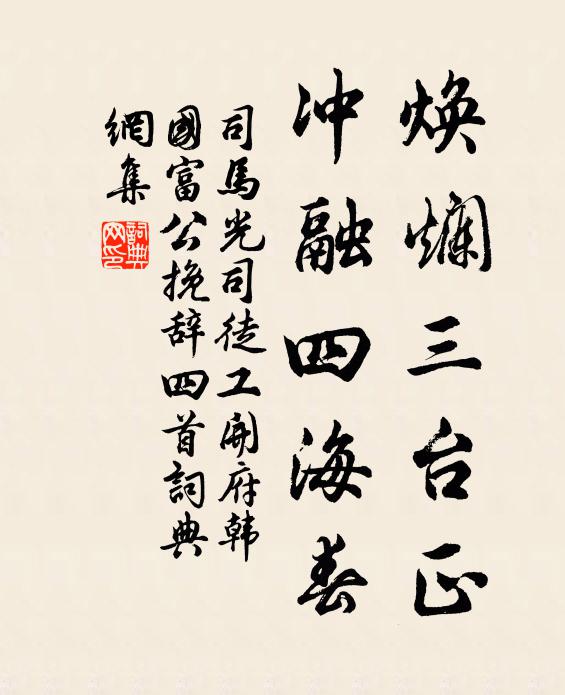 焕爛三台正
冲融四海春
司馬光司徒工開府韩
國富公挽辞四首詞典
網集
詞典网印